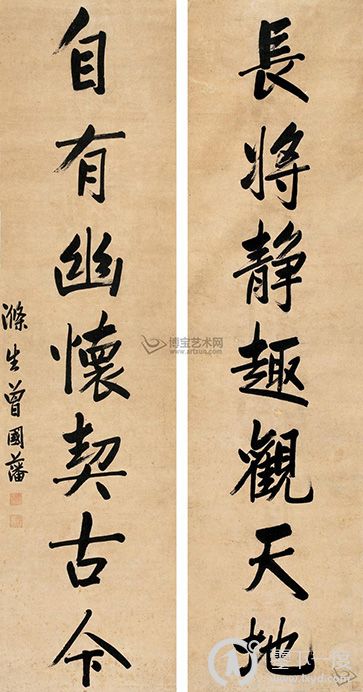 長將静趣觀天地
自有幽懷契古今
滌生曾國藩
博宝艺术网
www.artxun.com
www.lxyd.com